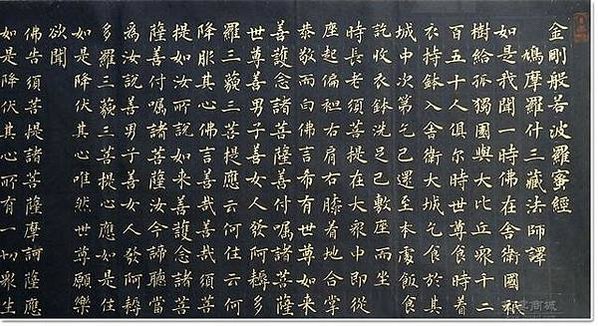 金剛般若波羅蜜經
鳩摩羅什三藏法師譯
如是我聞一時佛在舍衛國祇
樹給孤獨園與大比丘眾千二
百五十人俱尔時世尊食時着
衣持鉢入舍衛大城乞食於其
城中次第乞已還至本處飯食
訖收衣鉢洗足已敷座而坐
時長老須菩提在大眾中即從
座起偏袒右肩右膝着地合掌
恭敬而白佛言希有世尊如來
善護念諸菩薩善付囑諸菩薩
世尊善男子善女人發阿耨多
羅三藐三菩提應云何住云何
降服其心佛言善哉善哉須菩
提如汝所說如來善護念諸菩
薩善付囑諸菩薩汝今諦聽當
為汝說善男子善女人發阿耨
多羅三藐三菩提心應如是住
如是降伏其心唯然世尊願樂
欲聞
佛告須菩提諸菩薩摩訶薩應
如是降伏其心所有一切眾生
商城